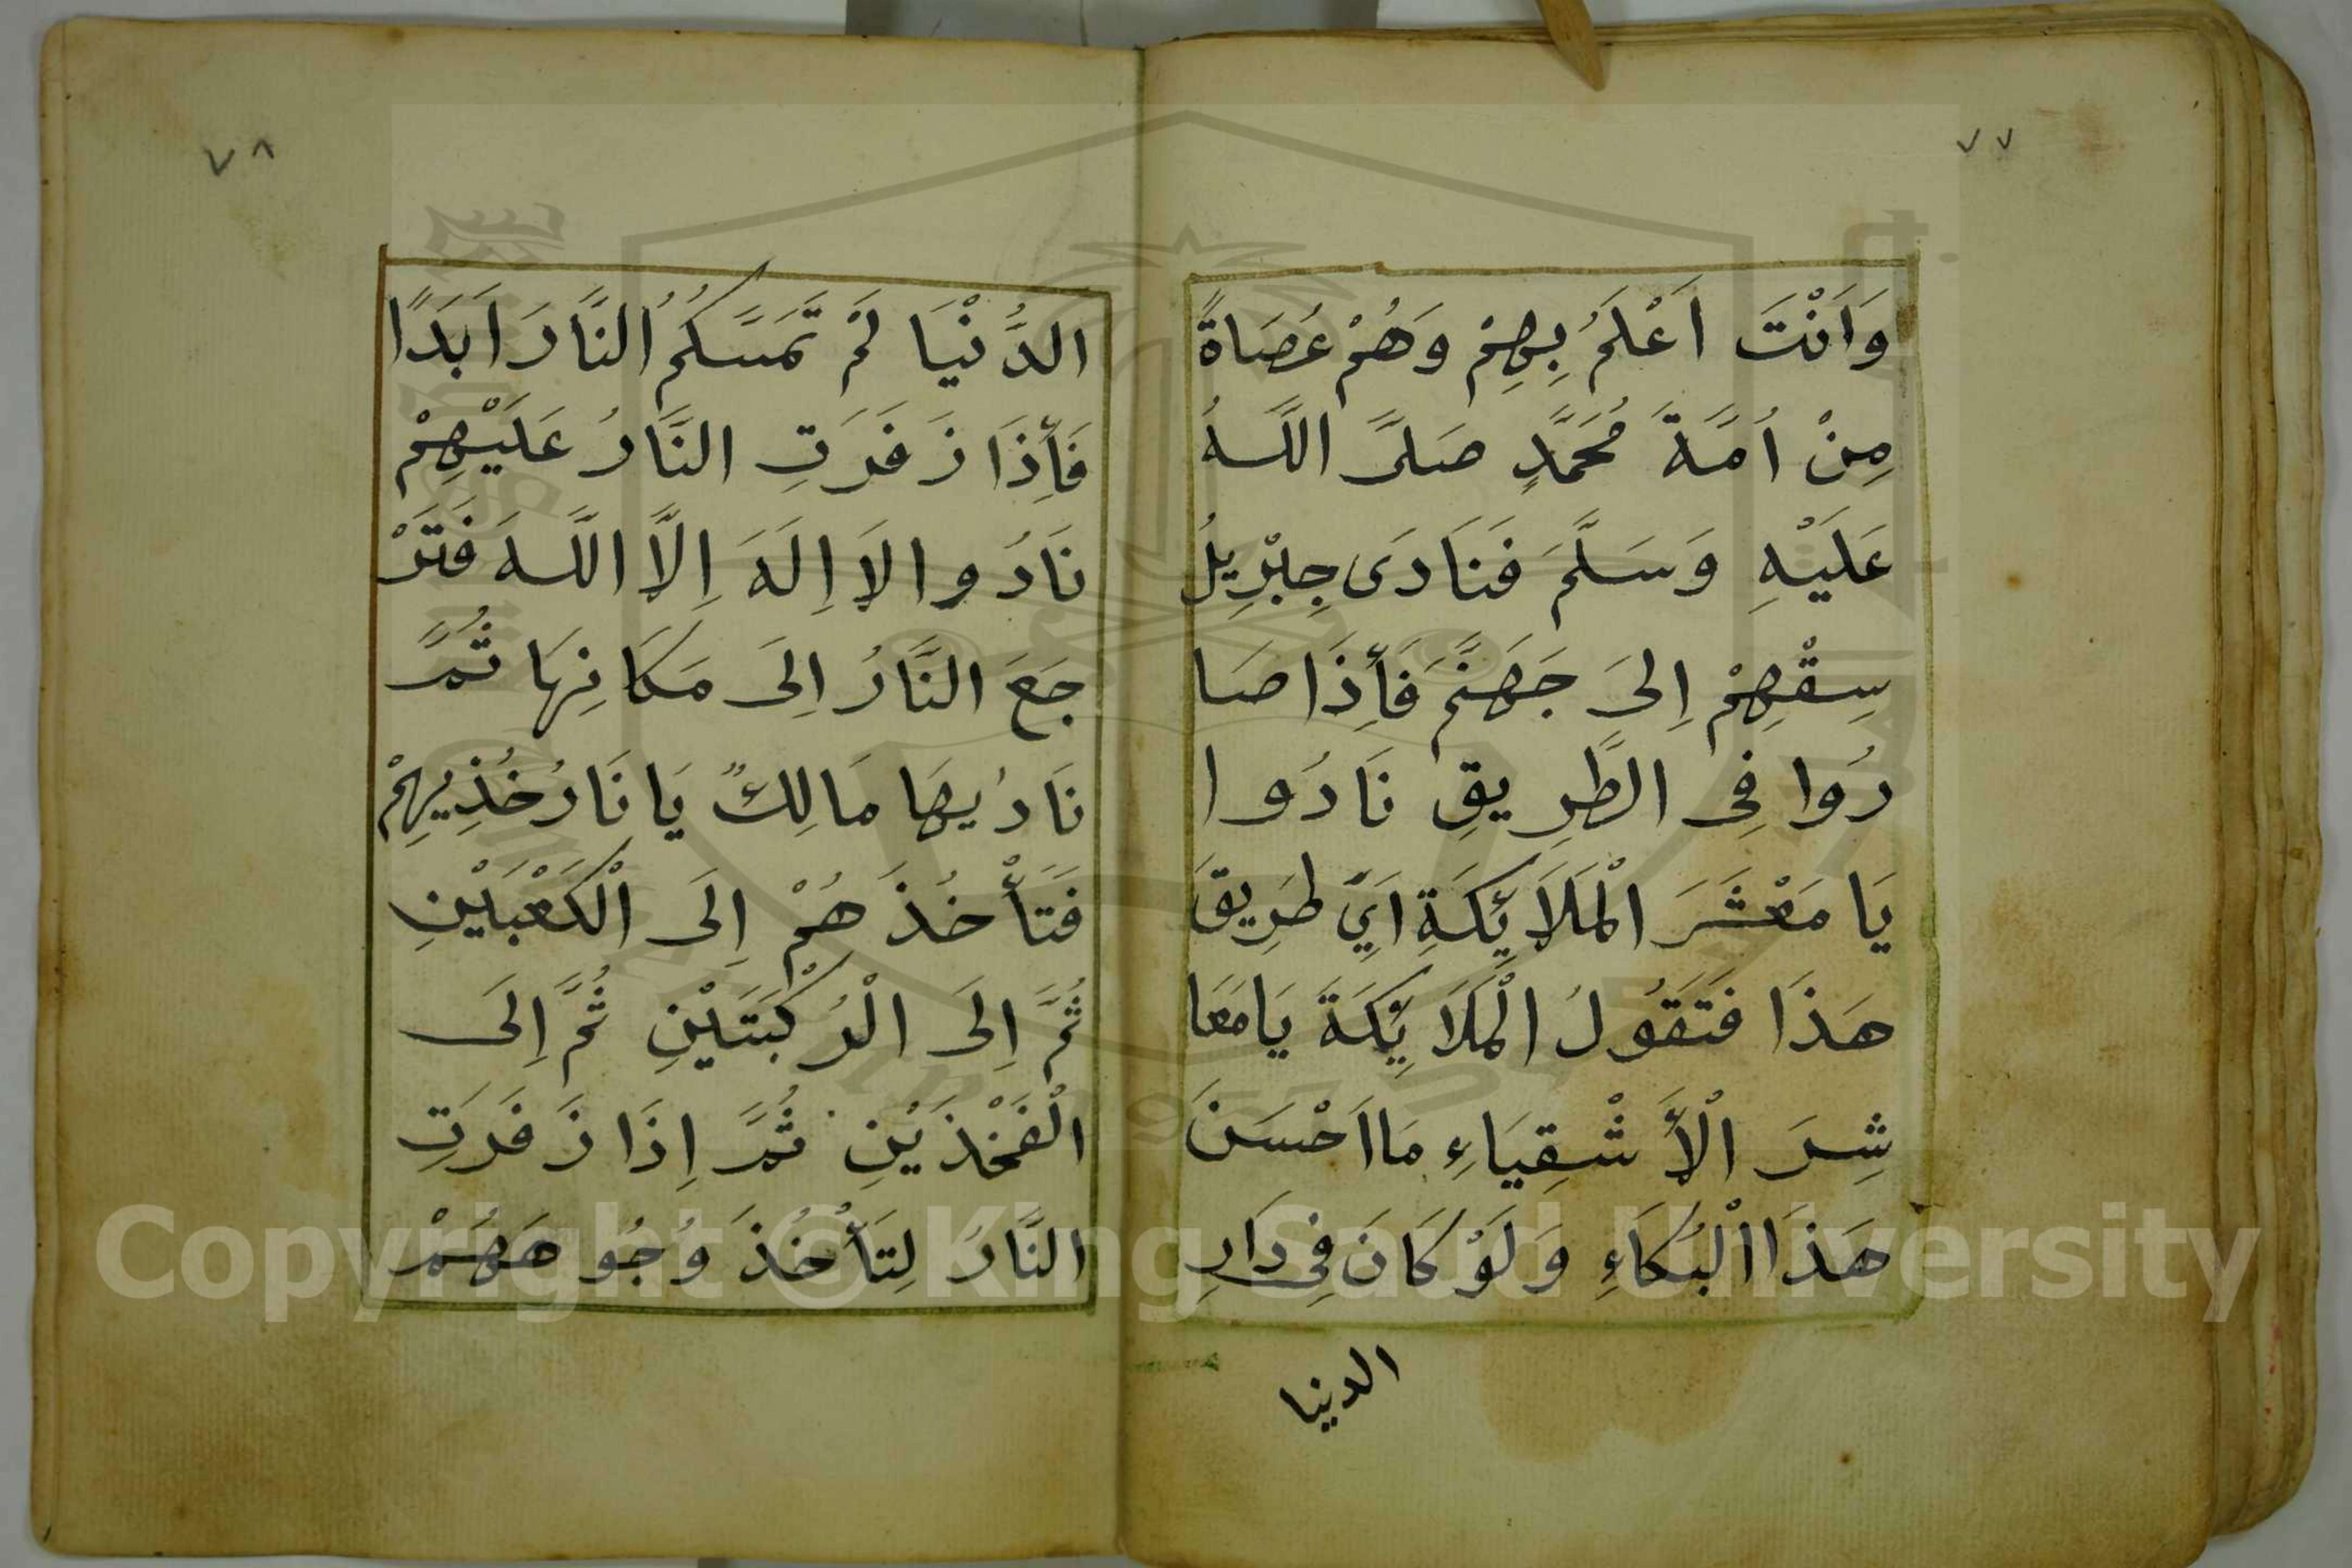 ٧٧
وَاَنْتَ اَعْلَمُ بِهِمْ وَهُمْ عُصَاةً
مِنْ اُمَّةَ مُحَمَّدٍ صَلَّى اللَّهُ
عَلَيْهِ وَسَلَّمَ فَنَادَى جِبْرِيلُ
سِقْهِمْ اِلَى جَهَنَّمَ فَأِذَا صَا
رُوا فِى الطَّرِيقِ نَادُوا
يَا مَعْشَرَ الْمَلَائِكَةِ اَيِّ طَرِيقَ
هَذَا فَتَقُولُ الْمَلَائِكَةَ يَا مَعَا
شِرَ الْأَشْقِيَاءِ مَا اَحْسَنَ
هَذَا الْبُكَاءِ وَلَوْ كَانَ فِى دَارِ
الدنيا
٧٨
الدُّنْيَا لَمْ تَمَسَّكُمُ النَّارَ اَبَدًا
فَأِذَا زَفَرَتِ النَّارُ عَلَيْهِمْ
نَادُوا لَا اِلَهَ اِلَّا اللَّهَ فَتَرْ
جَعَ النَّارُ اِلَى مَكَانِهَا ثُمَّ
نَادُيهَا مَالِكٌ يَا نَارُ خُذِيهِمْ
فَتَأْخُذَهُمْ اِلَى الْكَعْبَيْنِ
ثُمَّ اِلَى الْرُكْبَتَيْنِ ثُمَّ اِلَى
الْفَخْذَيْنِ ثُمَّ اِذَا زَفَرَتِ
النَّارُ لِتَأْخُذَ وُجُوهَهُمْ
Copyright © King Saud University